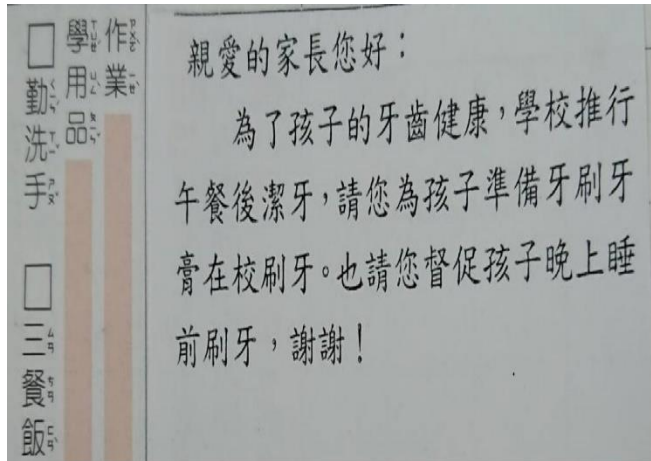 親愛的家長您好：
為了孩子的牙齒健康，學校推行
午餐後潔牙，請您為孩子準備牙刷牙
膏在校刷牙。也請您督促孩子晚上睡
前刷牙，謝謝！
作業
學用品
□勤洗手
□三餐飯